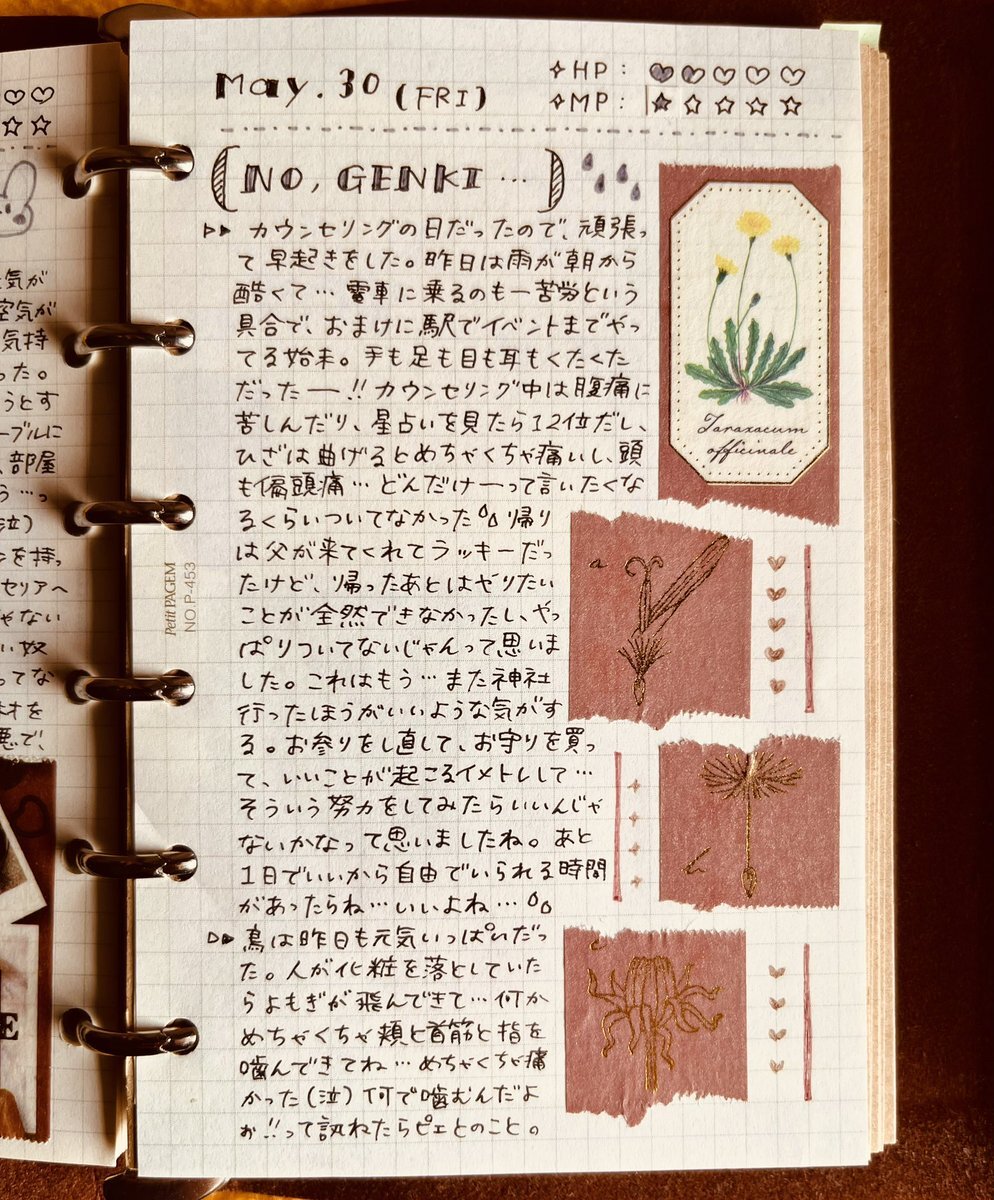 May. 30 (FRI)
✧HP: ♥♥♡♡♡
✧MP: ★☆☆☆☆
(NO, GENKI …)
▷▶ カウンセリングの日だったので、頑張っ
て早起きをした。昨日は雨が朝から
酷くて… 電車に乗るのも一苦労という
具合で、おまけに駅でイベントまでやっ
てる始末。手も足も目も耳もくたくた
だったー!! カウンセリング中は腹痛に
苦しんだり、星占いを見たら12位だし、
ひざは曲げるとめちゃくちゃ痛いし、頭
も偏頭痛… どんだけーって言いたくな
るくらいついてなかった 帰り
は父が来てくれてラッキーだっ
たけど、帰ったあとはやりたい
ことが全然できなかったし、やっ
ぱりついてないじゃんって思いま
した。これはもう… また神社
行ったほうがいいような気がす
る。お参りをし直して、お守りを買っ
て、いいことが起こるイメトレして…
そういう努力をしてみたらいいんじゃ
ないかなって思いましたね。あと
1日でいいから自由でいられる時間
があったらね… いいよね…
▷▶ 鳥は昨日も元気いっぱいだっ
た。人が化粧を落としていた
らよもぎが飛んできて… 何か
めちゃくちゃ頬と首筋と指を
噛んできてね… めちゃくちゃ痛
かった(泣) 何で噛むんだよ
ぉ!!って訊ねたらピェとのこと。
Taraxacum
officinale
a
b
c
Petit PAGEM
NO P-453
気が
空気が
気持
った。
うとす
ーブルに
、部屋
う…っ
(泣)
を持っ
セリアへ
ゃない
い奴
ってな
オを
悪で、
E